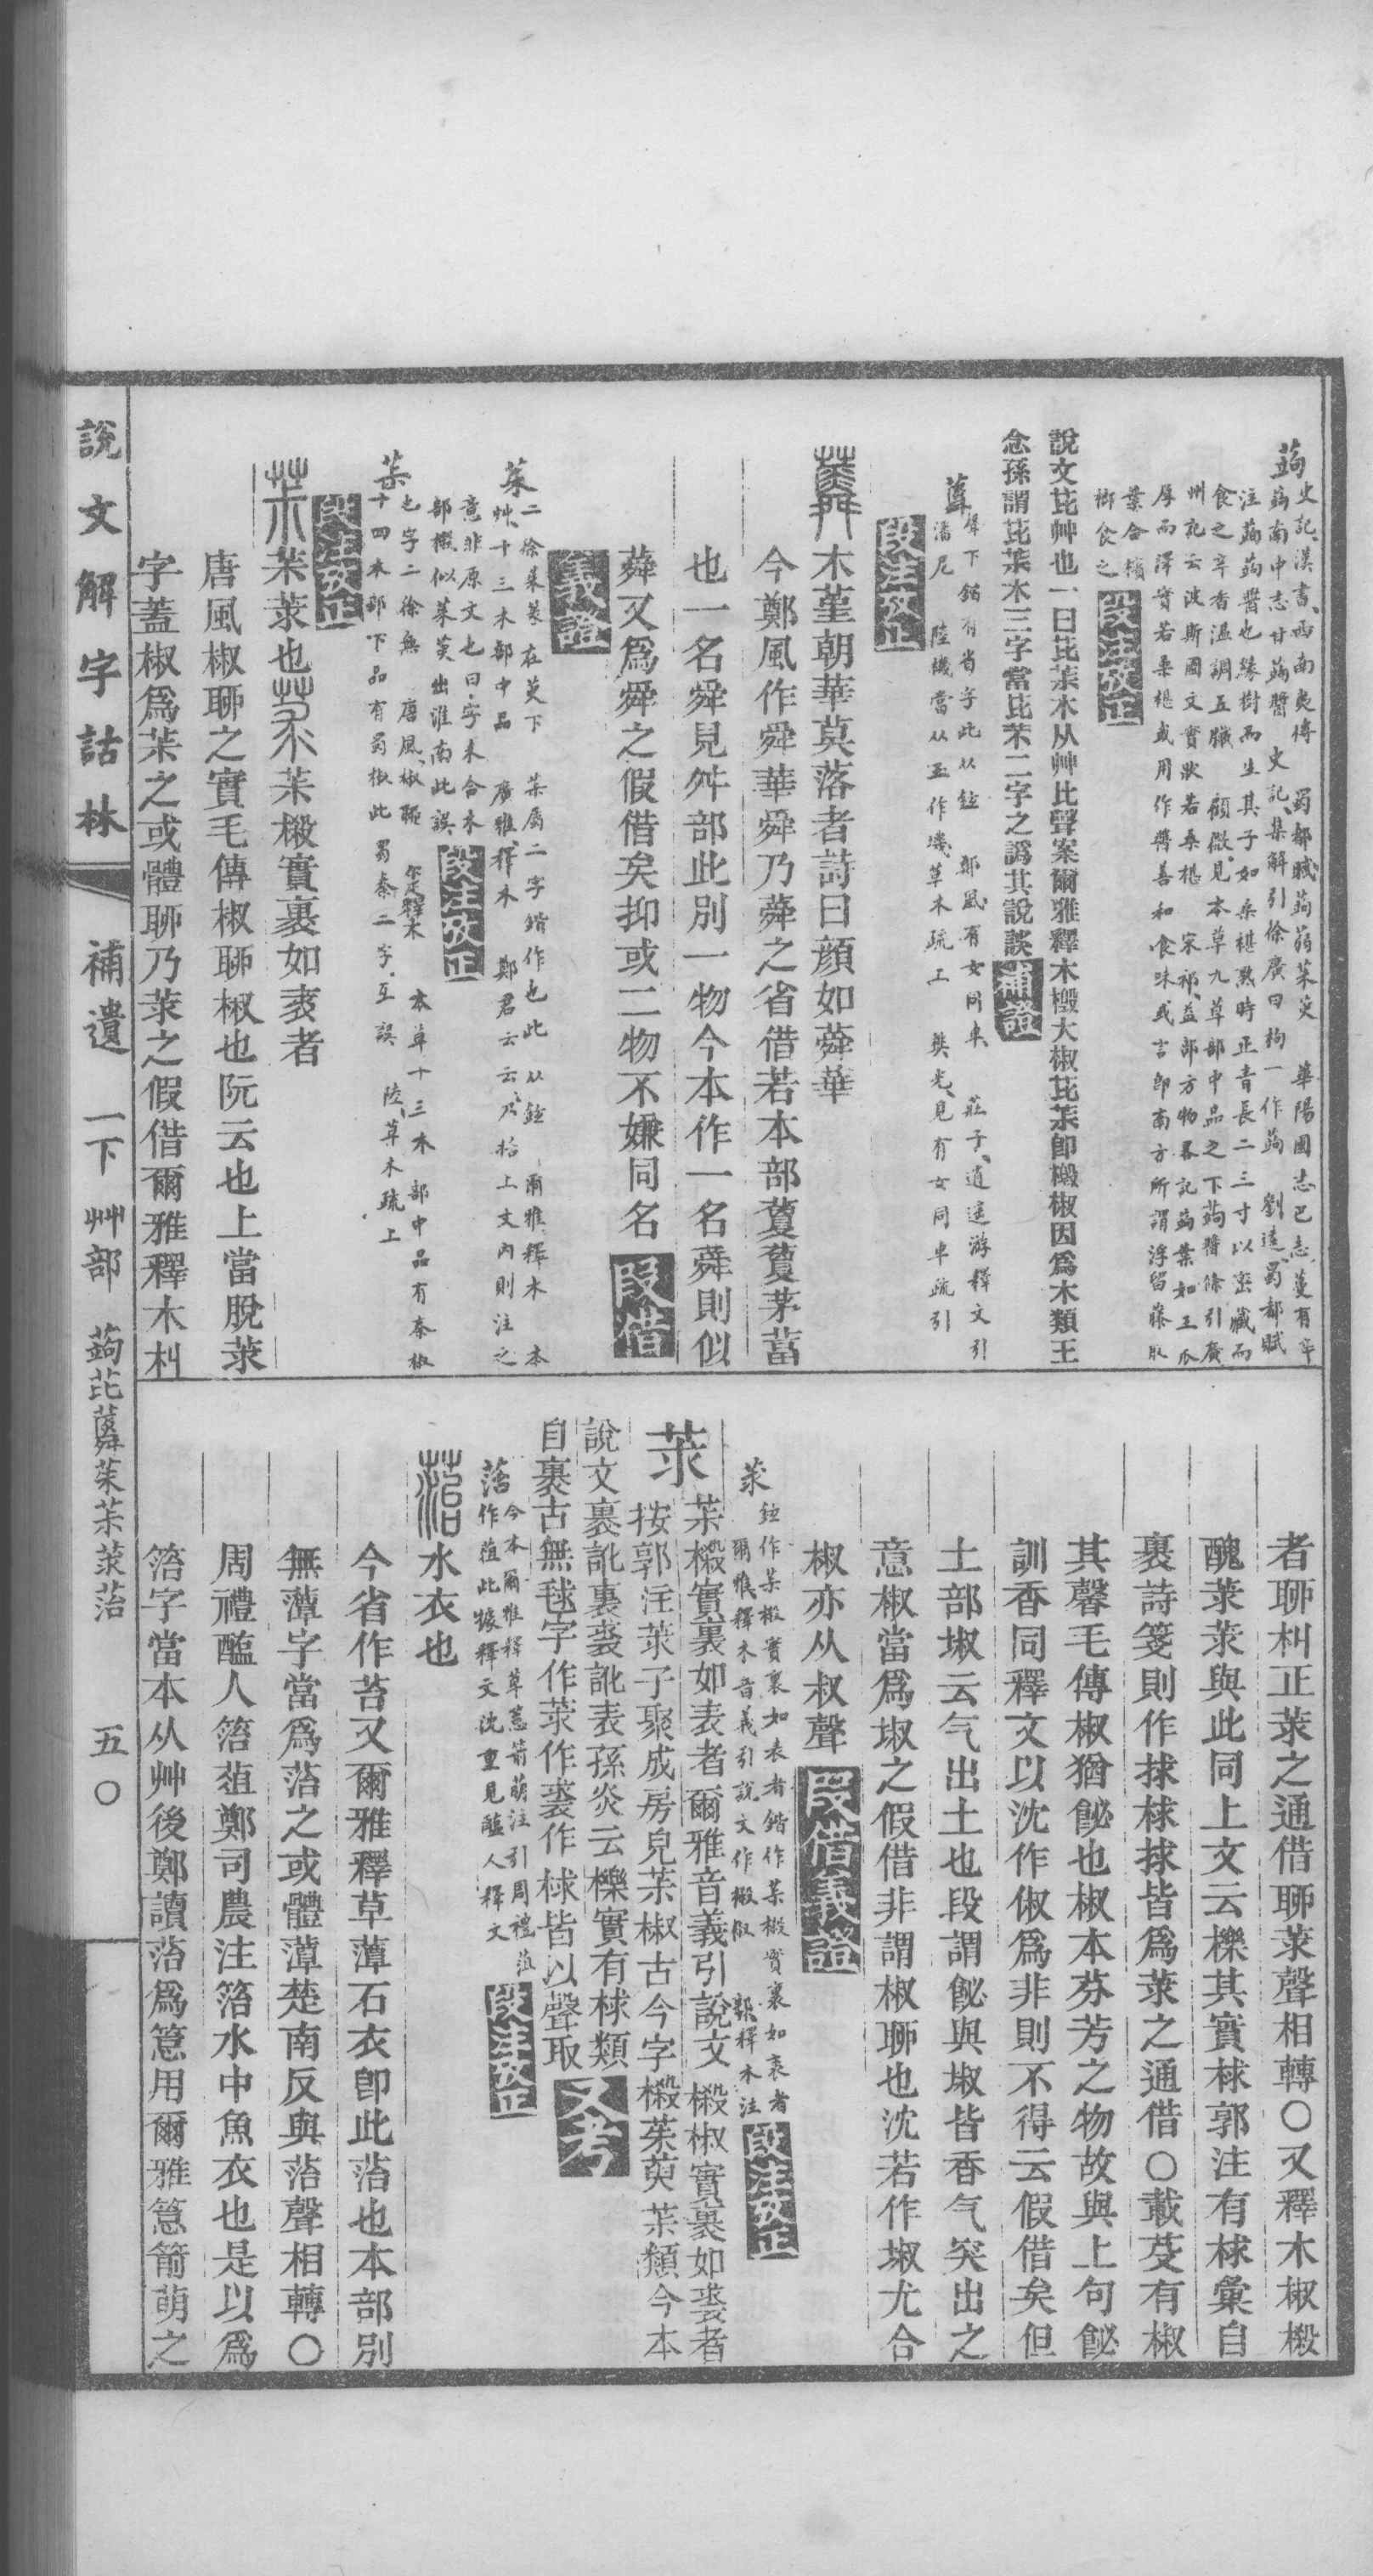 蒟史記、漢書、西南夷傳　蜀都賦、蒟蒻茱萸　華陽國志巴志、蔓有辛
蒟南中志甘蒟醬　史記、集解引徐廣曰枸一作蒟　劉逵、蜀都賦
注蒟蒟醬也緣樹而生其子如桑椹熟時正青長二三寸以蜜藏而
食之辛香溫調五臟　顧微、見本草九草部中品之下蒟醬條引廣
州記云波斯國文實狀若桑椹　宋祁、益部方物畧記蒟葉如王瓜
厚而澤實若桑椹或用作醬善和食味或言卽南方所謂浮留藤取
葉合檳
榔食之段注攷正
說文芘艸也一曰芘茮木从艸比聲案爾雅釋木檓大椒芘茮卽檓椒因爲木類王
念孫謂芘茮木三字當芘芣二字之譌其說誤補證
蕣聲下鍇有省字此从鉉　鄭風、有女同車　莊子、逍遙游釋文引
潘尼　陸機當从玉作璣草木疏上　樊光、見有女同車疏引
段注攷正
木堇朝華莫落者詩曰顏如蕣華
今鄭風作舜華舜乃蕣之省借若本部藑藑茅葍
也一名舜見舛部此別一物今本作一名蕣則似
蕣又爲舜之假借矣抑或二物不嫌同名段借
義證
茱二徐茱茮在萸下　茱屬二字鍇作也此从鉉　爾雅釋木　本
艸、十三木部中品　廣雅、釋木　鄭君云云、乃括上文內則注之
意非原文也曰字未合木
部樧似茱萸出淮南此誤段注攷正
茮之字二徐無　唐風、椒聊　爾雅釋木　本草十三木部中品有秦椒
十四木部下品有蜀椒此蜀秦二字互誤　陸、草木疏上
段注攷正
茮茮莍也莍茮樧實裹如裘者
唐風椒聊之實毛傳椒聊椒也阮云也上當脫莍
字蓋椒爲茮之或體聊乃莍之假借爾雅釋木朻
者聊朻正莍之通借聊莍聲相轉〇又釋木椒樧
醜莍莍與此同上文云櫟其實梂郭注有梂彙自
裹詩箋則作捄梂捄皆爲莍之通借〇載芟有椒
其馨毛傳椒猶飶也椒本芬芳之物故與上句飶
訓香同釋文以沈作俶爲非則不得云假借矣但
土部埱云气出土也段謂飶與埱皆香气突出之
意椒當爲埱之假借非謂椒聊也沈若作埱尤合
椒亦从叔聲段借義證
莍鉉作茮樧實裏如表者鍇作茮樧實裏如裘者
爾雅釋木音義引說文作樧椒　鄭釋木注段注攷正
莍茮樧實裏如表者爾雅音義引說文樧椒實裹如裘者
按郭注莍子聚成房皃茮椒古今字樧茱萸茮類今本
說文裹訛裏裘訛表孫炎云櫟實有梂類
自裹古無毬字作莍作裘作梂皆以聲取又考
菭今本爾雅釋草薹箭萌注引周禮菹
作菹此據釋文沈重見醢人釋文段注攷正
水衣也
今省作苔又爾雅釋草藫石衣卽此菭也本部別
無藫字當爲菭之或體藫楚南反與菭聲相轉〇
周禮醢人箈菹鄭司農注箈水中魚衣也是以爲
箈字當本从艸後鄭讀菭爲䈚用爾雅䈚箭萌之
說文解字詁林　補遺　一下艸部　蒟芘蕣茱茮莍菭　五〇